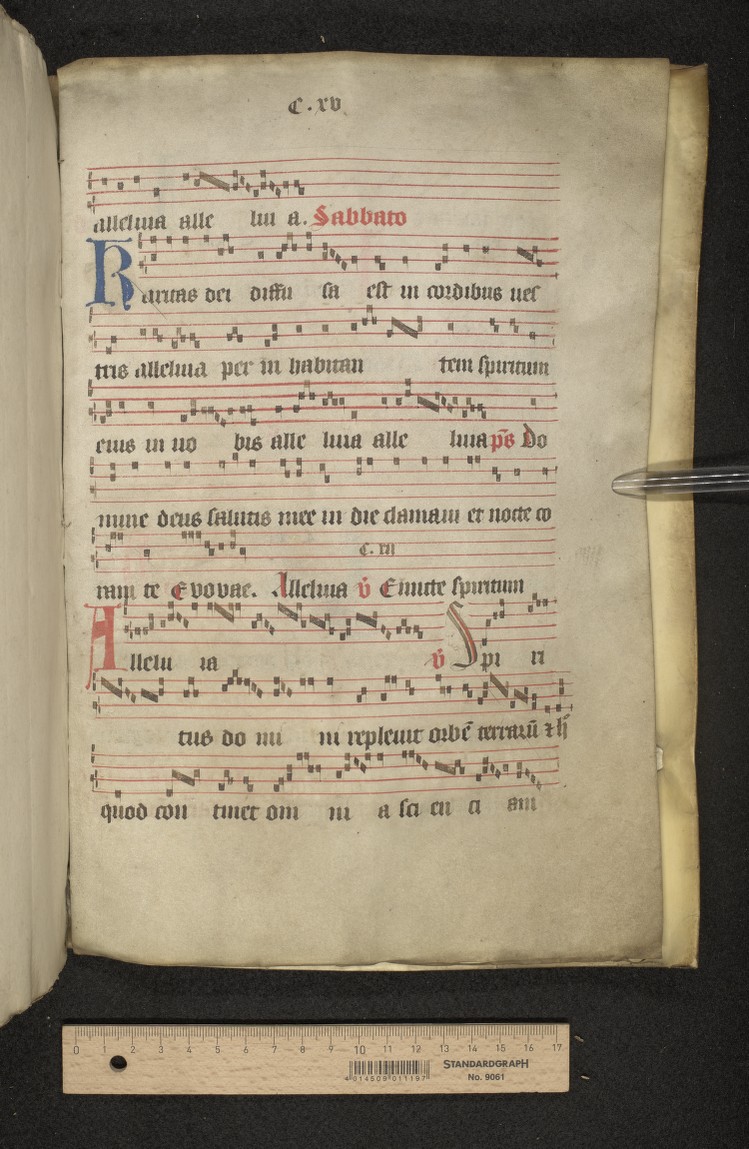 C. xv
alleluia alle lui a. Sabbato
Karitas dei diffu sa est in cordibus ues
tris alleluia per in habitan tem spiritum
eius in uo bis alle luia alle luia ps̄ Do
mine deus salutis mee in die clamaui et nocte co
ram te Evovae. C. xii Alleluia v̄ Emitte spiritum
Allelu ia v̄ Spi ri
tus do mi ni repleuit orbē terrarū ⁊ h̄
quod con tinet om ni a sci en ci am
0 1 2 3 4 5 6 7 8 9 10 11 12 13 14 15 16 17
4 014509 011197
STANDARDGRAPH
No. 9061